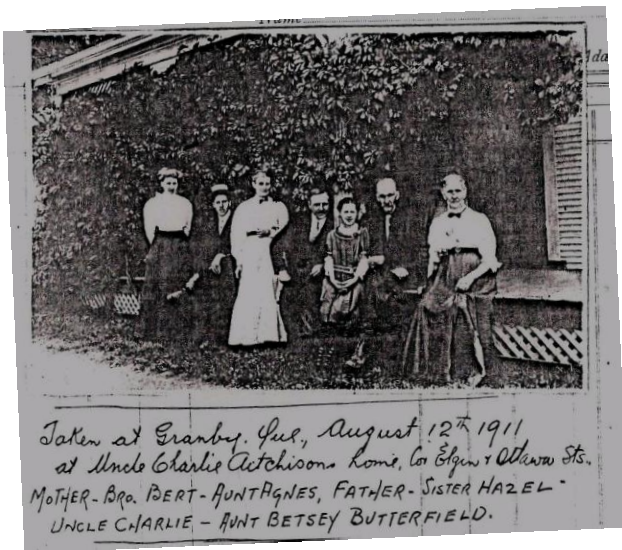 Name
Taken at Granby. Que., August 12TH 1911
at Uncle Charlie Aitchisons home, Cor Elgin & Ottawa Sts.
MOTHER - BRO. BERT - AUNT AGNES, FATHER - SISTER HAZEL -
UNCLE CHARLIE - AUNT BETSEY BUTTERFIELD.